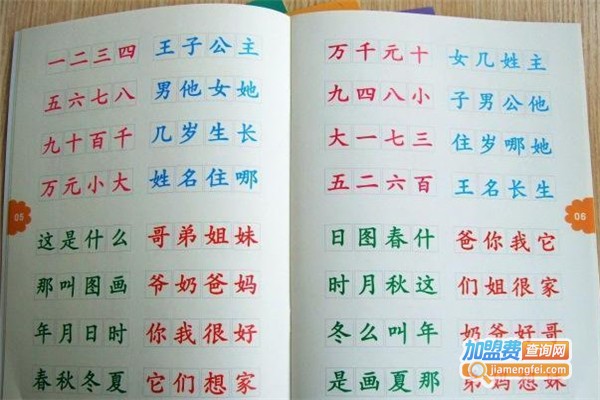 一二三四
五六七八
九十百千
万元小大
王子公主
男他女她
几岁生长
姓名住哪
这是什么
那叫图画
年月日时
春秋冬夏
哥弟姐妹
爷奶爸妈
你我很好
它们想家
05
万千元十
九四八小
大一七三
五二六百
女几姓主
子男公他
住岁哪她
王名长生
日图春什
时月秋这
冬么叫年
是画夏那
爸你我它
们姐很家
奶爷好哥
弟妈想妹
06
加盟费查询网
jiamengfei.com